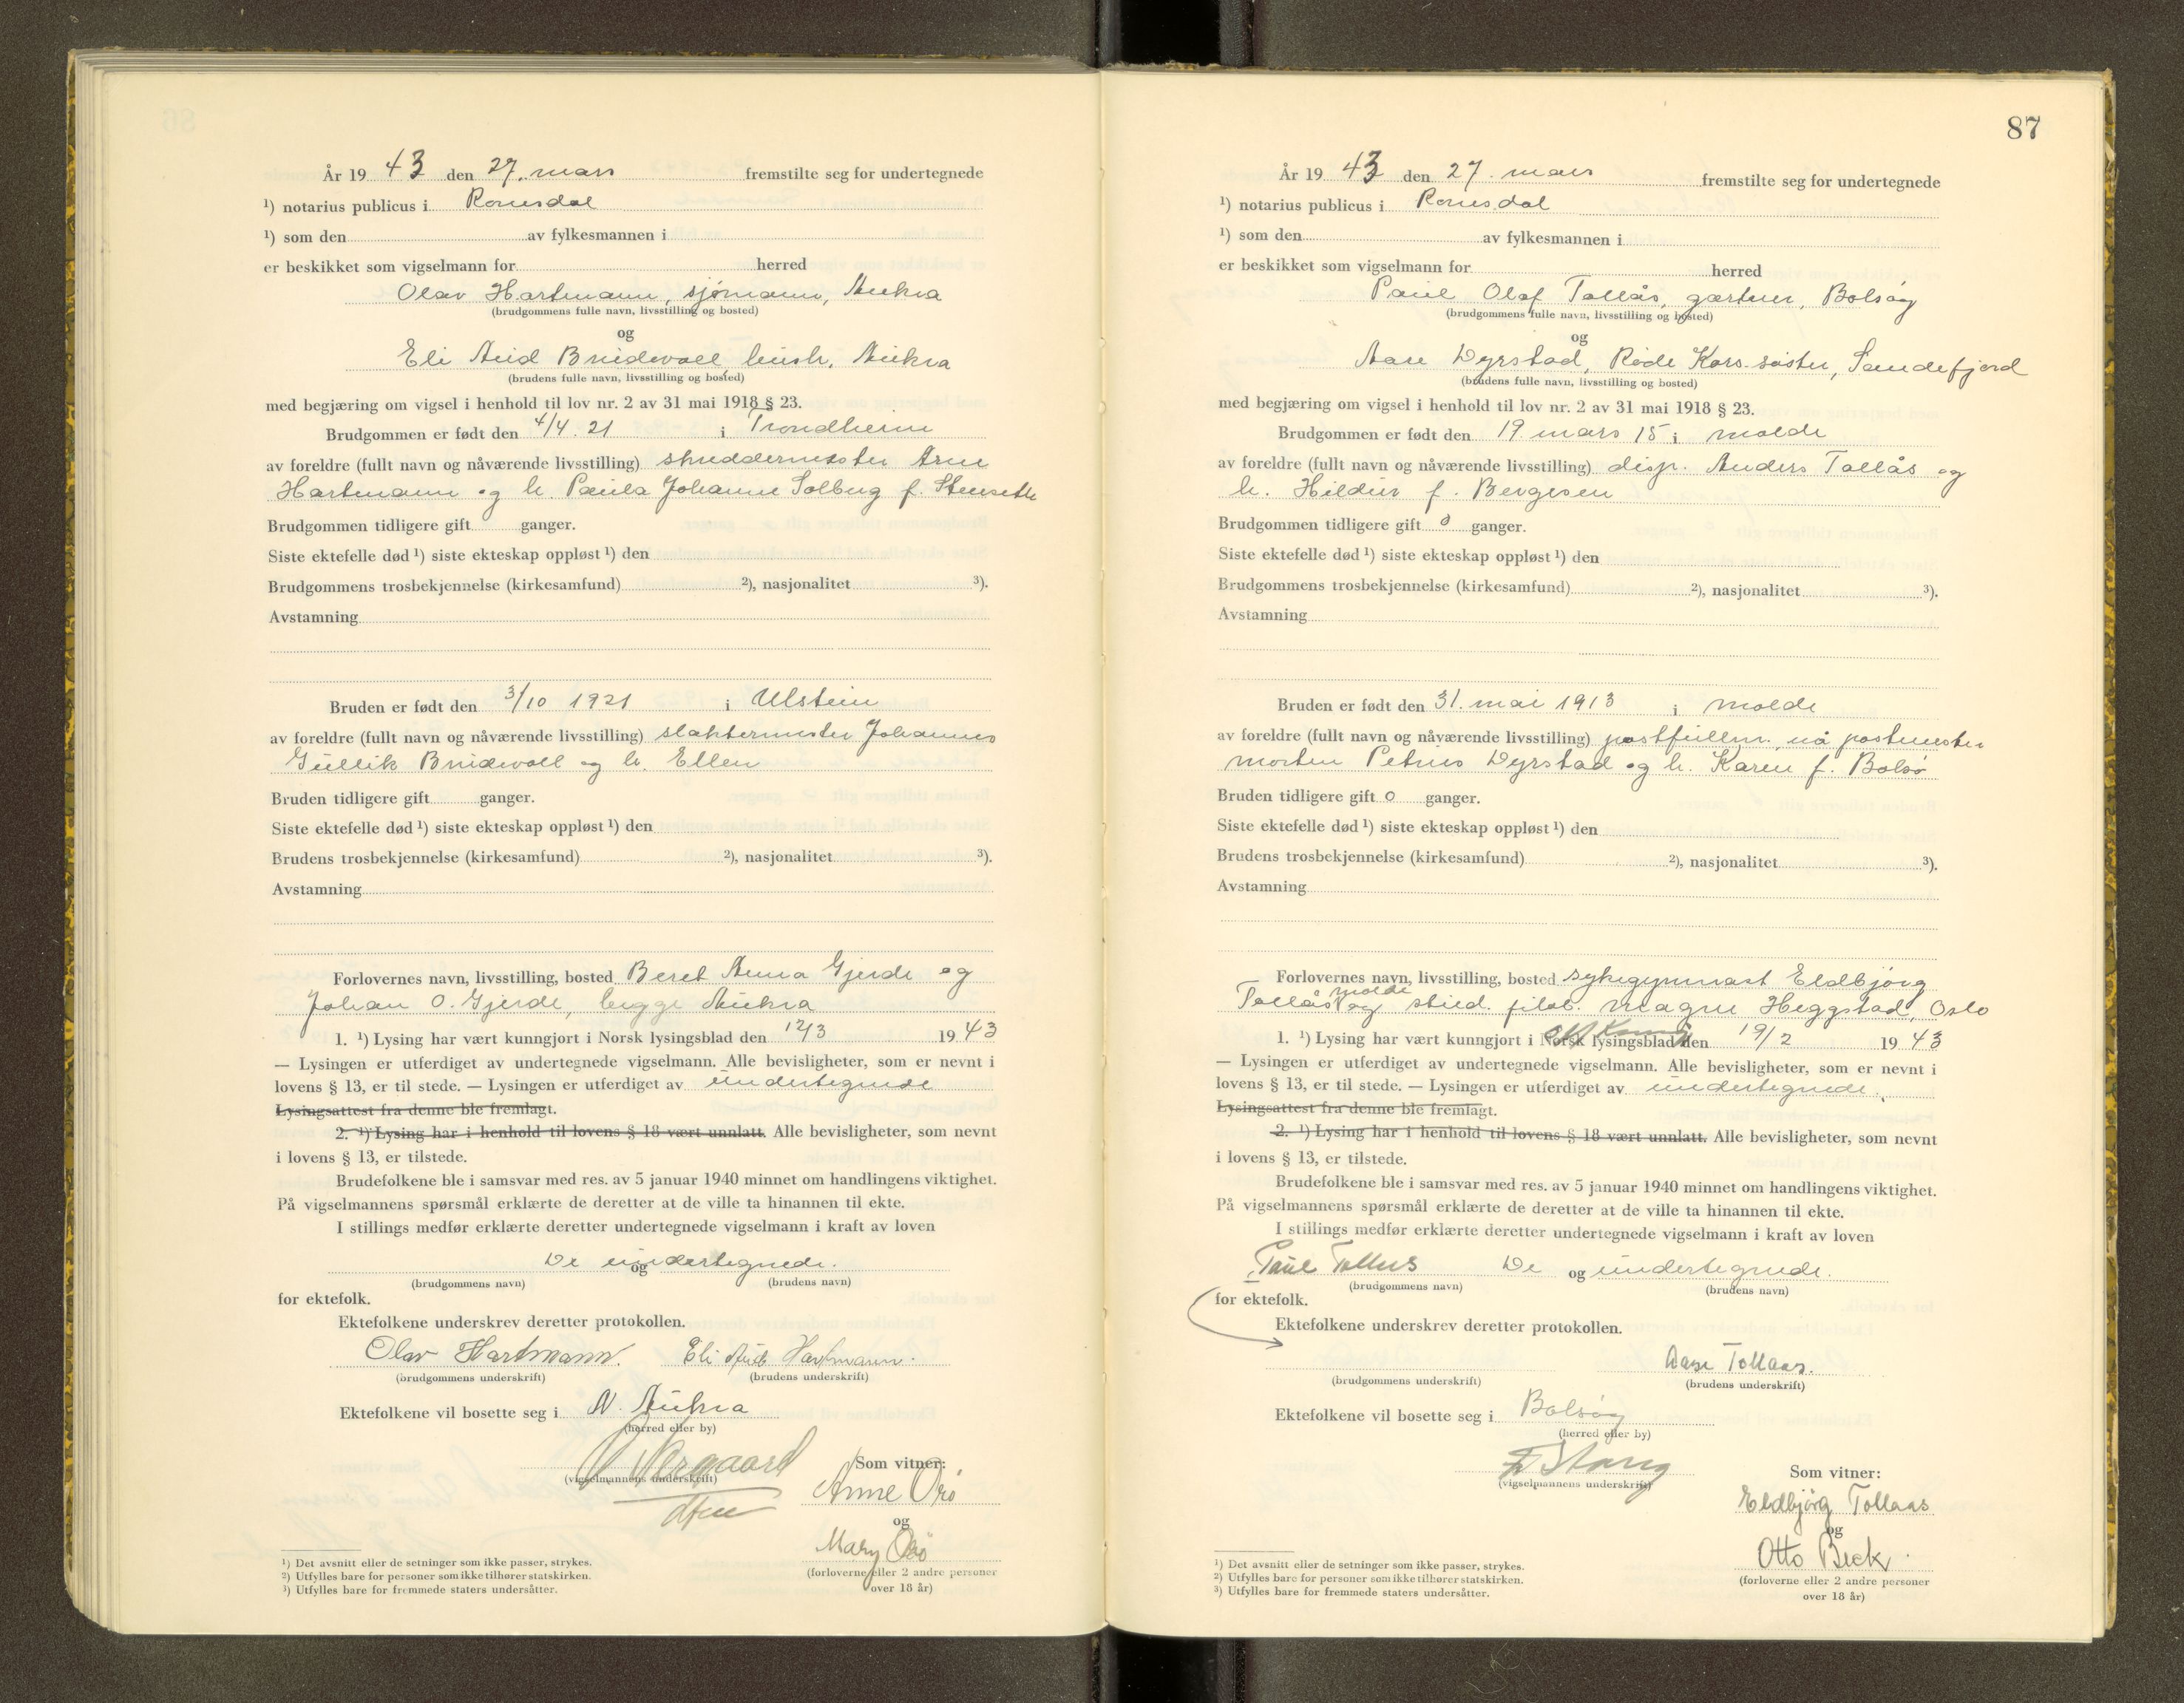 År 19 43 den 27. mars fremstilte seg for undertegnede
¹) notarius publicus i Romsdal
¹) som den av fylkesmannen i
er beskikket som vigselmann for herred
Olav Hartmann, sjømann, Aukra
(brudgommens fulle navn, livsstilling og bosted)
og
Eli Aud Brudevoll, hush. Aukra
(brudens fulle navn, livsstilling og bosted)
med begjæring om vigsel i henhold til lov nr. 2 av 31 mai 1918 § 23.
Brudgommen er født den 4/4. 21 i Trondheim
av foreldre (fullt navn og nåværende livsstilling) skreddermester Arne
Hartmann og h. Paula Johanne Solbug f. Stenseth
Brudgommen tidligere gift ganger.
Siste ektefelle død ¹) siste ekteskap oppløst ¹) den
Brudgommens trosbekjennelse (kirkesamfund) ²), nasjonalitet ³).
Avstamning
Bruden er født den 3/10 1921 i Ulstein
av foreldre (fullt navn og nåværende livsstilling) slaktermester Johannes
Gullik Brudevoll og h. Ellen
Bruden tidligere gift ganger.
Siste ektefelle død ¹) siste ekteskap oppløst ¹) den
Brudens trosbekjennelse (kirkesamfund) ²), nasjonalitet ³).
Avstamning
Forlovernes navn, livsstilling, bosted Beret Anna Gjerde og
Johan O. Gjerde, begge Aukra
1. ¹) Lysing har vært kunngjort i Norsk lysingsblad den 12/3 19 43
— Lysingen er utferdiget av undertegnede vigselmann. Alle bevisligheter, som er nevnt i
lovens § 13, er til stede. — Lysingen er utferdiget av undertegnede
Lysingsattest fra denne ble fremlagt.
2. ¹) Lysing har i henhold til lovens § 18 vært unnlatt. Alle bevisligheter, som nevnt
i lovens § 13, er tilstede.
Brudefolkene ble i samsvar med res. av 5 januar 1940 minnet om handlingens viktighet.
På vigselmannens spørsmål erklærte de deretter at de ville ta hinannen til ekte.
I stillings medfør erklærte deretter undertegnede vigselmann i kraft av loven
De undertegnede.
og
(brudgommens navn) (brudens navn)
for ektefolk.
Ektefolkene underskrev deretter protokollen.
Olav Hartmann. Eli Aud Hartmann.
(brudgommens underskrift) (brudens underskrift)
Ektefolkene vil bosette seg i N. Aukra
(herred eller by)
(vigselmannens underskrift)
Som vitner:
Anne Orø
og
Mary Orø
(forloverne eller 2 andre personer
over 18 år)
¹) Det avsnitt eller de setninger som ikke passer, strykes.
²) Utfylles bare for personer som ikke tilhører statskirken.
³) Utfylles bare for fremmede staters undersåtter.
87
År 19 43 den 27. mars fremstilte seg for undertegnede
¹) notarius publicus i Romsdal
¹) som den av fylkesmannen i
er beskikket som vigselmann for herred
Paul Olaf Tollås, gartner, Bolsøy
(brudgommens fulle navn, livsstilling og bosted)
og
Aase Dyrstad, Røde Kors-søster, Sandefjord
(brudens fulle navn, livsstilling og bosted)
med begjæring om vigsel i henhold til lov nr. 2 av 31 mai 1918 § 23.
Brudgommen er født den 19. mars 15 i Molde
av foreldre (fullt navn og nåværende livsstilling) disp. Anders Tollås og
h. Hildur f. Bergesen
Brudgommen tidligere gift 0 ganger.
Siste ektefelle død ¹) siste ekteskap oppløst ¹) den
Brudgommens trosbekjennelse (kirkesamfund) ²), nasjonalitet ³).
Avstamning
Bruden er født den 31. mai 1913 i Molde
av foreldre (fullt navn og nåværende livsstilling) postfullm., nå postmester
Morten Petrus Dyrstad og h. Karen f. Bolsø
Bruden tidligere gift 0 ganger.
Siste ektefelle død ¹) siste ekteskap oppløst ¹) den
Brudens trosbekjennelse (kirkesamfund) ²), nasjonalitet ³).
Avstamning
Forlovernes navn, livsstilling, bosted sykegymnast Eldbjørg
Tollås Molde og stud. filol. Magne Heggstad, Oslo
1. ¹) Lysing har vært kunngjort i Norsk lysingsblad den 19/2 19 43
— Lysingen er utferdiget av undertegnede vigselmann. Alle bevisligheter, som er nevnt i
lovens § 13, er til stede. — Lysingen er utferdiget av undertegnede.
Lysingsattest fra denne ble fremlagt.
2. ¹) Lysing har i henhold til lovens § 18 vært unnlatt. Alle bevisligheter, som nevnt
i lovens § 13, er tilstede.
Brudefolkene ble i samsvar med res. av 5 januar 1940 minnet om handlingens viktighet.
På vigselmannens spørsmål erklærte de deretter at de ville ta hinannen til ekte.
I stillings medfør erklærte deretter undertegnede vigselmann i kraft av loven
Paul Tollås De og undertegnede.
(brudgommens navn) (brudens navn)
for ektefolk.
Ektefolkene underskrev deretter protokollen.
Aase Tollaas.
(brudgommens underskrift) (brudens underskrift)
Ektefolkene vil bosette seg i Bolsøy
(herred eller by)
(vigselmannens underskrift)
Som vitner:
Eldbjørg Tollaas
og
Otto Beck.
(forloverne eller 2 andre personer
over 18 år)
¹) Det avsnitt eller de setninger som ikke passer, strykes.
²) Utfylles bare for personer som ikke tilhører statskirken.
³) Utfylles bare for fremmede staters undersåtter.